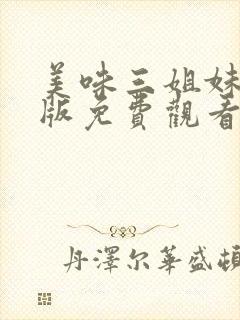 美味三姐妹
版免費觀看
丹澤尔華盛頓